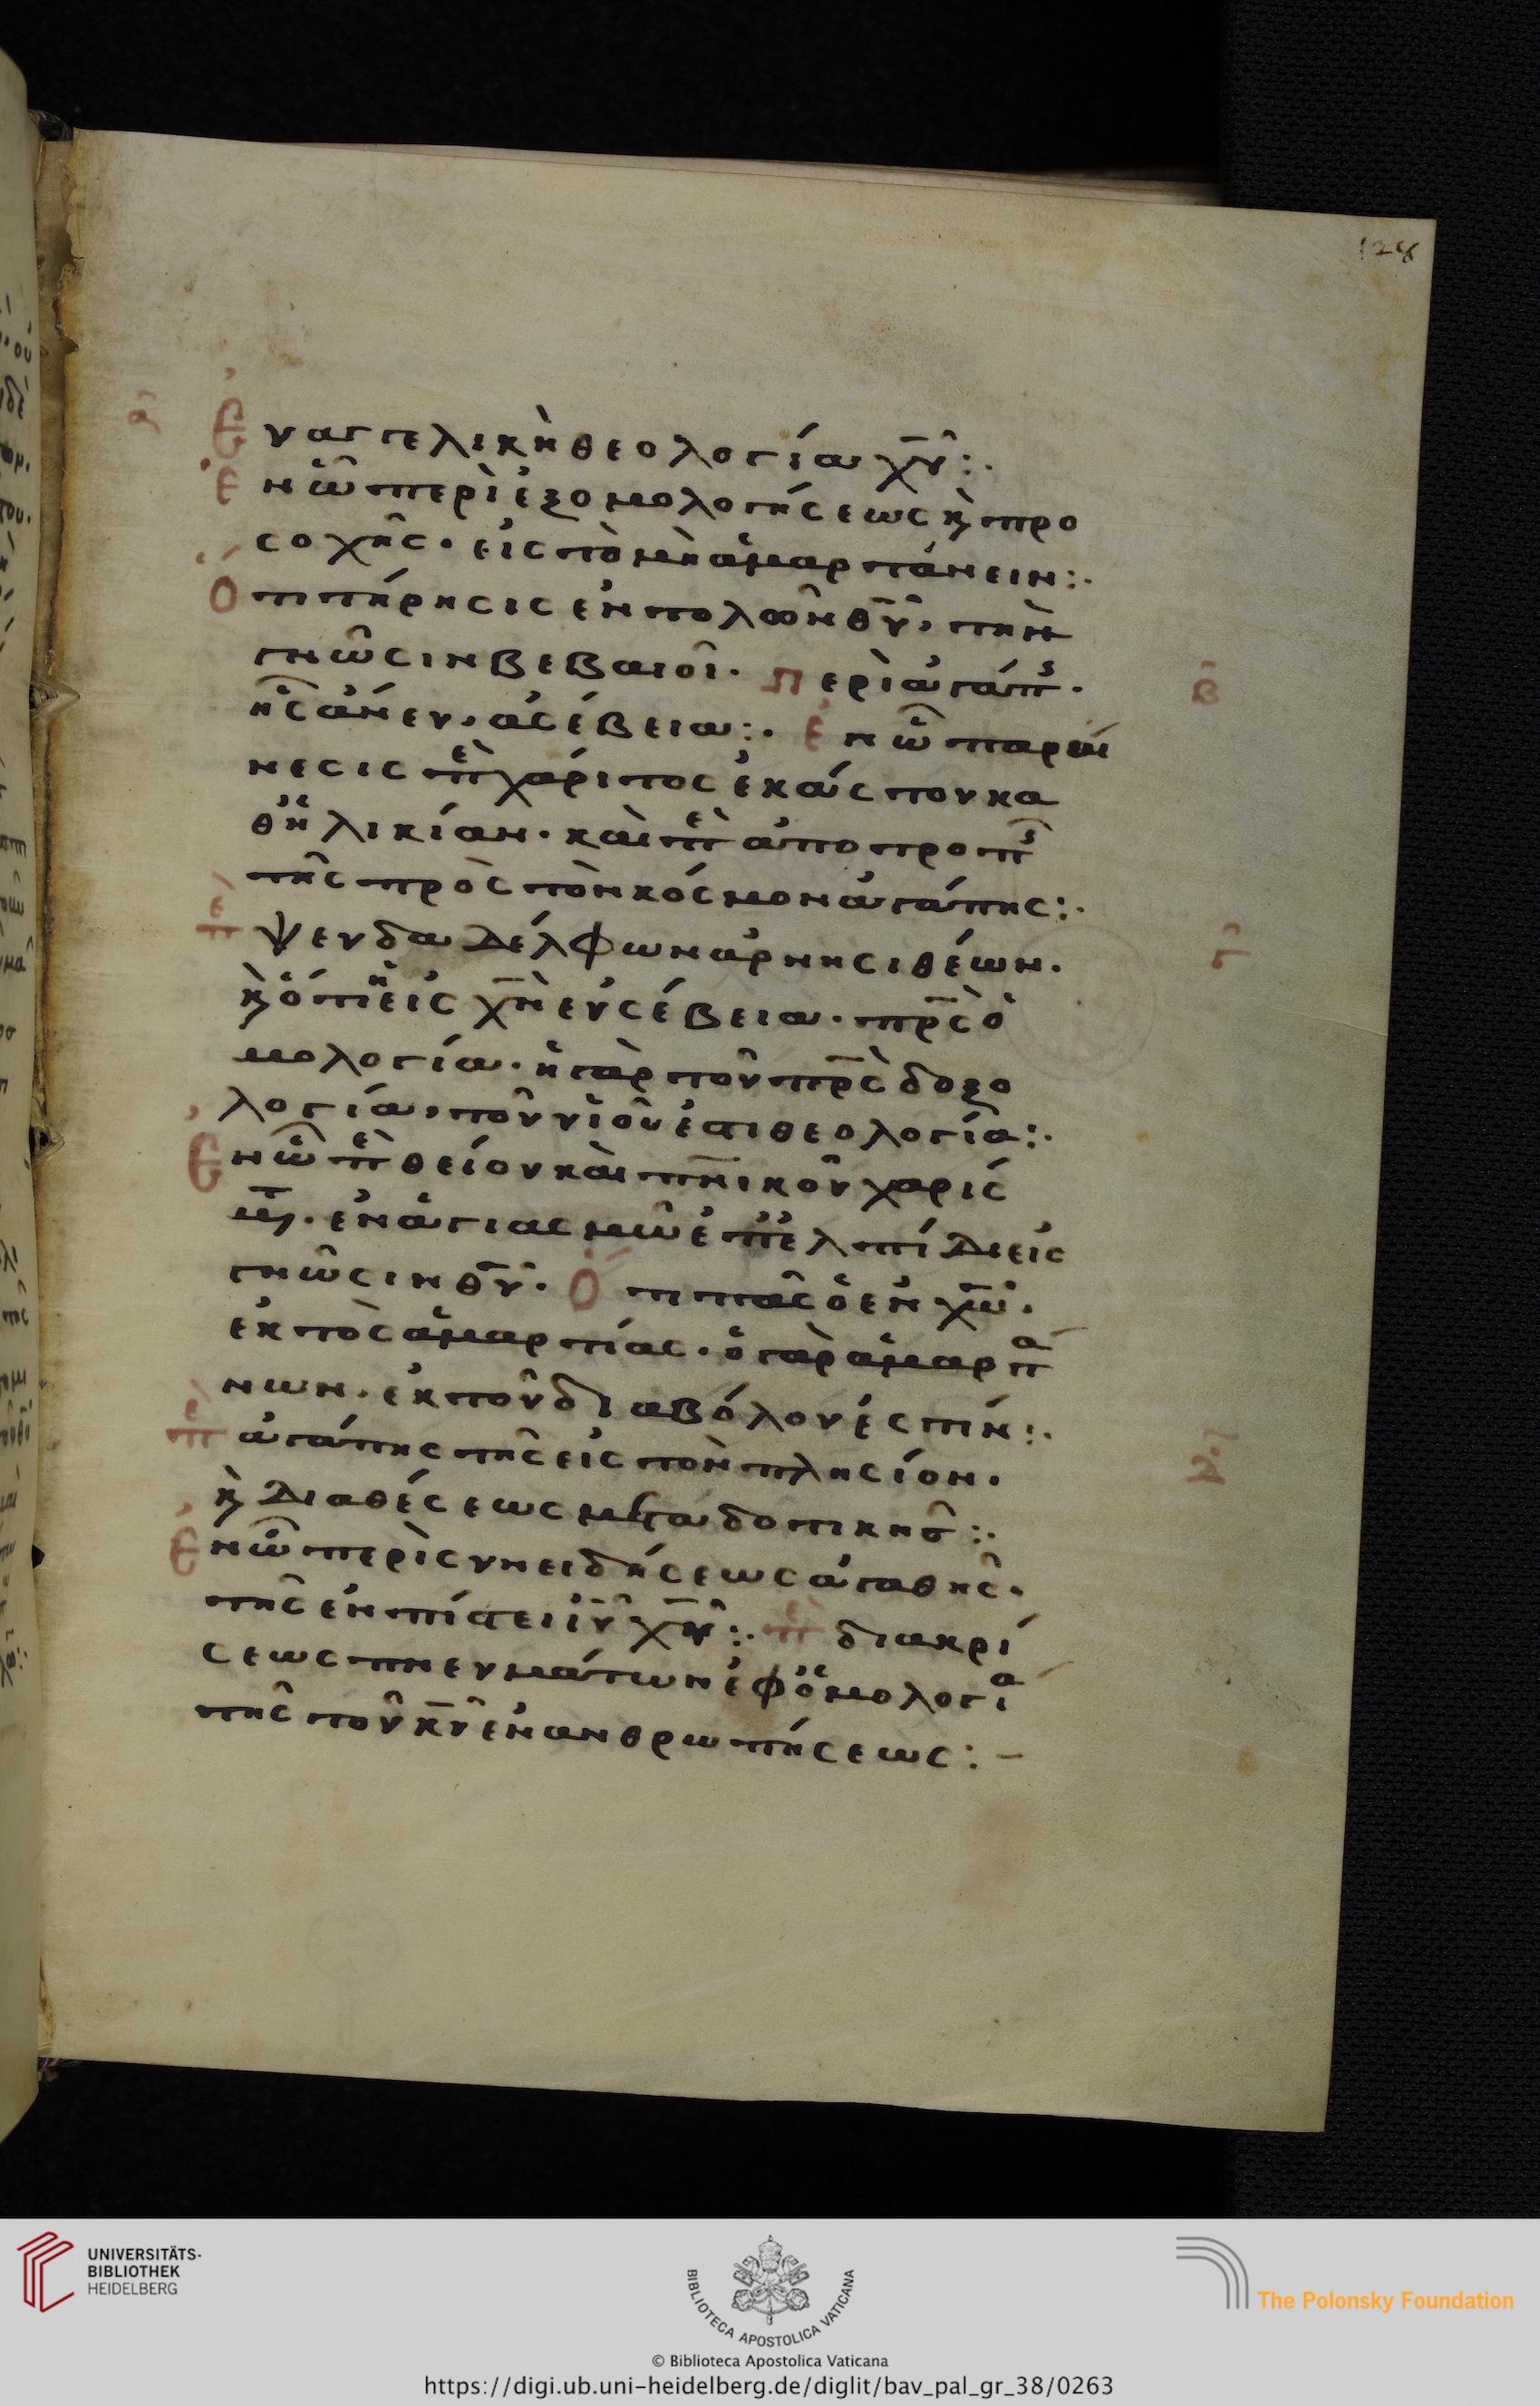 128
α
Εὐαγγελικὴ θεολογία χ̅υ̅:·
Ἐν ᾧ περὶ ἐξομολογήσεως κ̀ προ
σοχῆς· εἰς τὸ μὴ ἁμαρτάνειν:·
Ὅτι τήρησις ἐντολῶν θ̅υ̅, τὴν
γνῶσιν βεβαιοῖ· Περὶ ἀγάπ·
β
ἧς ἄνευ, ἀσέβεια:· Ἐν ᾧ παραί
νεσις πε χάριτος ἑκάστου κα
θ᾽ ἡλικίαν· καὶ πε ἀποτροπ
τῆς πρὸς τὸν κόσμον ἀγάπης:·
πε ψευδαδέλφων ἀρνησιθέων·
γ
κ̀ ὅτι ἡ εἰς χ̅ν̅ εὐσέβεια· π̅ρ̅ς̅ ὁ
μολογία· ἡ γὰρ τοῦ π̅ρ̅ς̅ δοξο
λογία, τοῦ υἱοῦ ἐστι θεολογία:·
Ἐν ᾧ πε θείου καὶ π̅ν̅ικοῦ χαρίσ
μ· ἐν ἁγιασμῶ ἐπ᾽ ἐλπίδι εἰς
γνῶσιν θ̅υ̅· Ὅτι πᾶς ὁ ἐν χ̅ω̅·
ἐκτὸς ἁμαρτίας· ὁ γὰρ ἁμαρτα
νων· ἐκ τοῦ διαβόλου ἐστίν:·
πε ἀγάπης τῆς εἰς τὸν πλησίον·
δ
κ̀ διαθέσεως μεταδοτικῆς:·
Ἐν ᾧ περὶ συνειδήσεως ἀγαθῆς·
τῆς ἐν πίστει ι̅υ̅ χ̅υ̅:· πε διακρί
σεως πνευμάτων ἐφ᾽ ὁμολογία
τῆς τοῦ κ̅υ̅ ἐνανθρωπήσεως:–
UNIVERSITÄTS-
BIBLIOTHEK
HEIDELBERG
BIBLIOTECA APOSTOLICA VATICANA
The Polonsky Foundation
© Biblioteca Apostolica Vaticana
https://digi.ub.uni-heidelberg.de/diglit/bav_pal_gr_38/0263